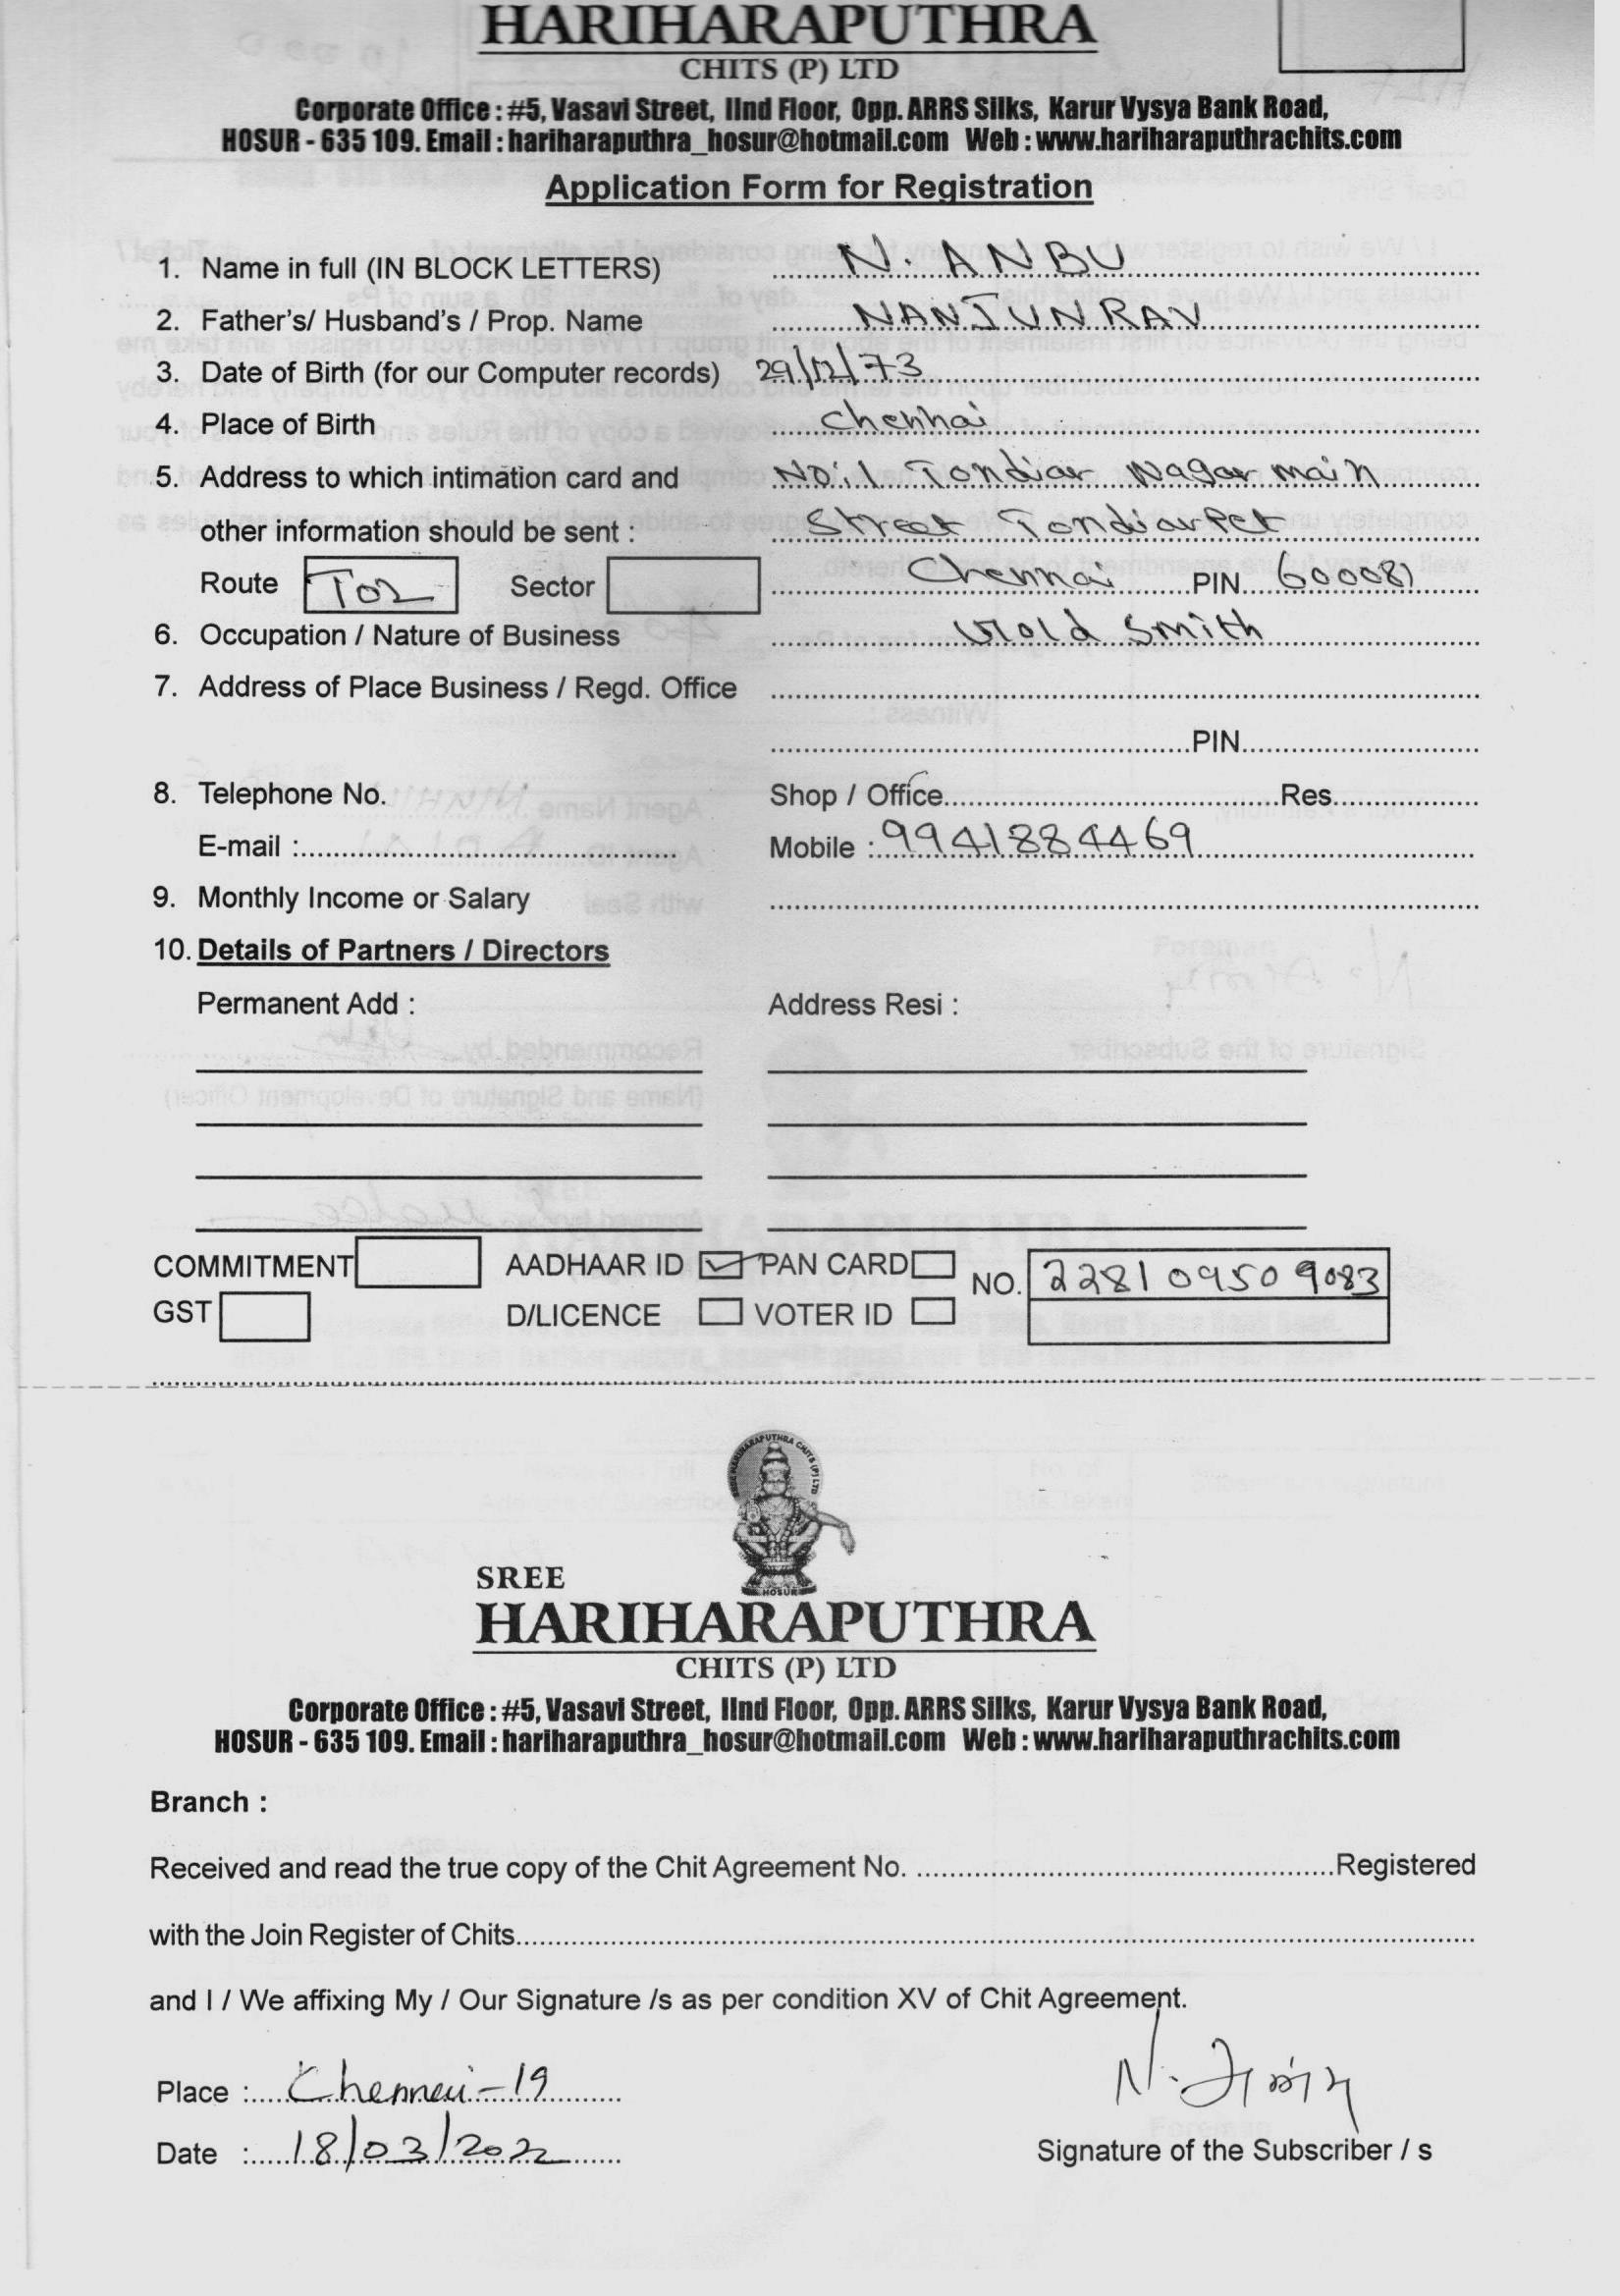 HARIHARAPUTHRA
CHITS (P) LTD
Corporate Office : #5, Vasavi Street, IInd Floor, Opp. ARRS Silks, Karur Vysya Bank Road,
HOSUR - 635 109. Email : hariharaputhra_hosur@hotmail.com Web : www.hariharaputhrachits.com
Application Form for Registration
1. Name in full (IN BLOCK LETTERS) N. ANBU
2. Father's/ Husband's / Prop. Name NANJUNRAV
3. Date of Birth (for our Computer records) 29/12/73
4. Place of Birth Chennai
5. Address to which intimation card and No:1 Tondiar Nagar main
other information should be sent : Street Tondiarpet
Route T02 Sector Chennai PIN 600081
6. Occupation / Nature of Business Gold Smith
7. Address of Place Business / Regd. Office
PIN
8. Telephone No. Shop / Office Res
E-mail : Mobile : 9941884469
9. Monthly Income or Salary
10. Details of Partners / Directors
Permanent Add : Address Resi :
COMMITMENT AADHAAR ID PAN CARD NO. 2281 0950 9083
GST D/LICENCE VOTER ID
SREE HARIHARAPUTHRA CHITS (P) LTD
HOSUR
SREE
HARIHARAPUTHRA
CHITS (P) LTD
Corporate Office : #5, Vasavi Street, IInd Floor, Opp. ARRS Silks, Karur Vysya Bank Road,
HOSUR - 635 109. Email : hariharaputhra_hosur@hotmail.com Web : www.hariharaputhrachits.com
Branch :
Received and read the true copy of the Chit Agreement No. Registered
with the Join Register of Chits
and I / We affixing My / Our Signature /s as per condition XV of Chit Agreement.
Place : Chennai - 19 N. அன்பு
Date : 18/03/2022 Signature of the Subscriber / s